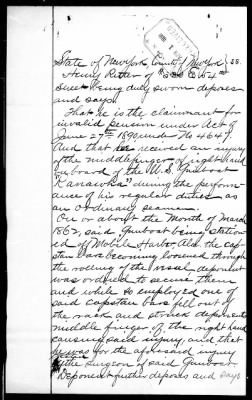 State of New York County of New York } SS.
Henry Ritter of 
Street being duly sworn deposes
and says
That he is the claimant for
invalid pension under Act of
June 27th 1890, under No 4647,
And that he received an injury
of the middle finger of right hand
on board of the U.S. Gunboat
"Kanawha" during the perform-
ance of his regular duties as
an ordinary seaman.
On or about the Month of March
1862, said Gunboat being station-
ed off Mobile Harbor, Ala. the cap-
stan bars becoming loosened through
the rolling of the vessel deponent
was ordered to secure them
and while so employed one of
said capstan bars fell out of
the rack and struck deponents
middle finger of the right hand
causing said injury, and that
he was for the aforesaid injury
by the surgeon of said Gunboat
Deponent further deposes and says